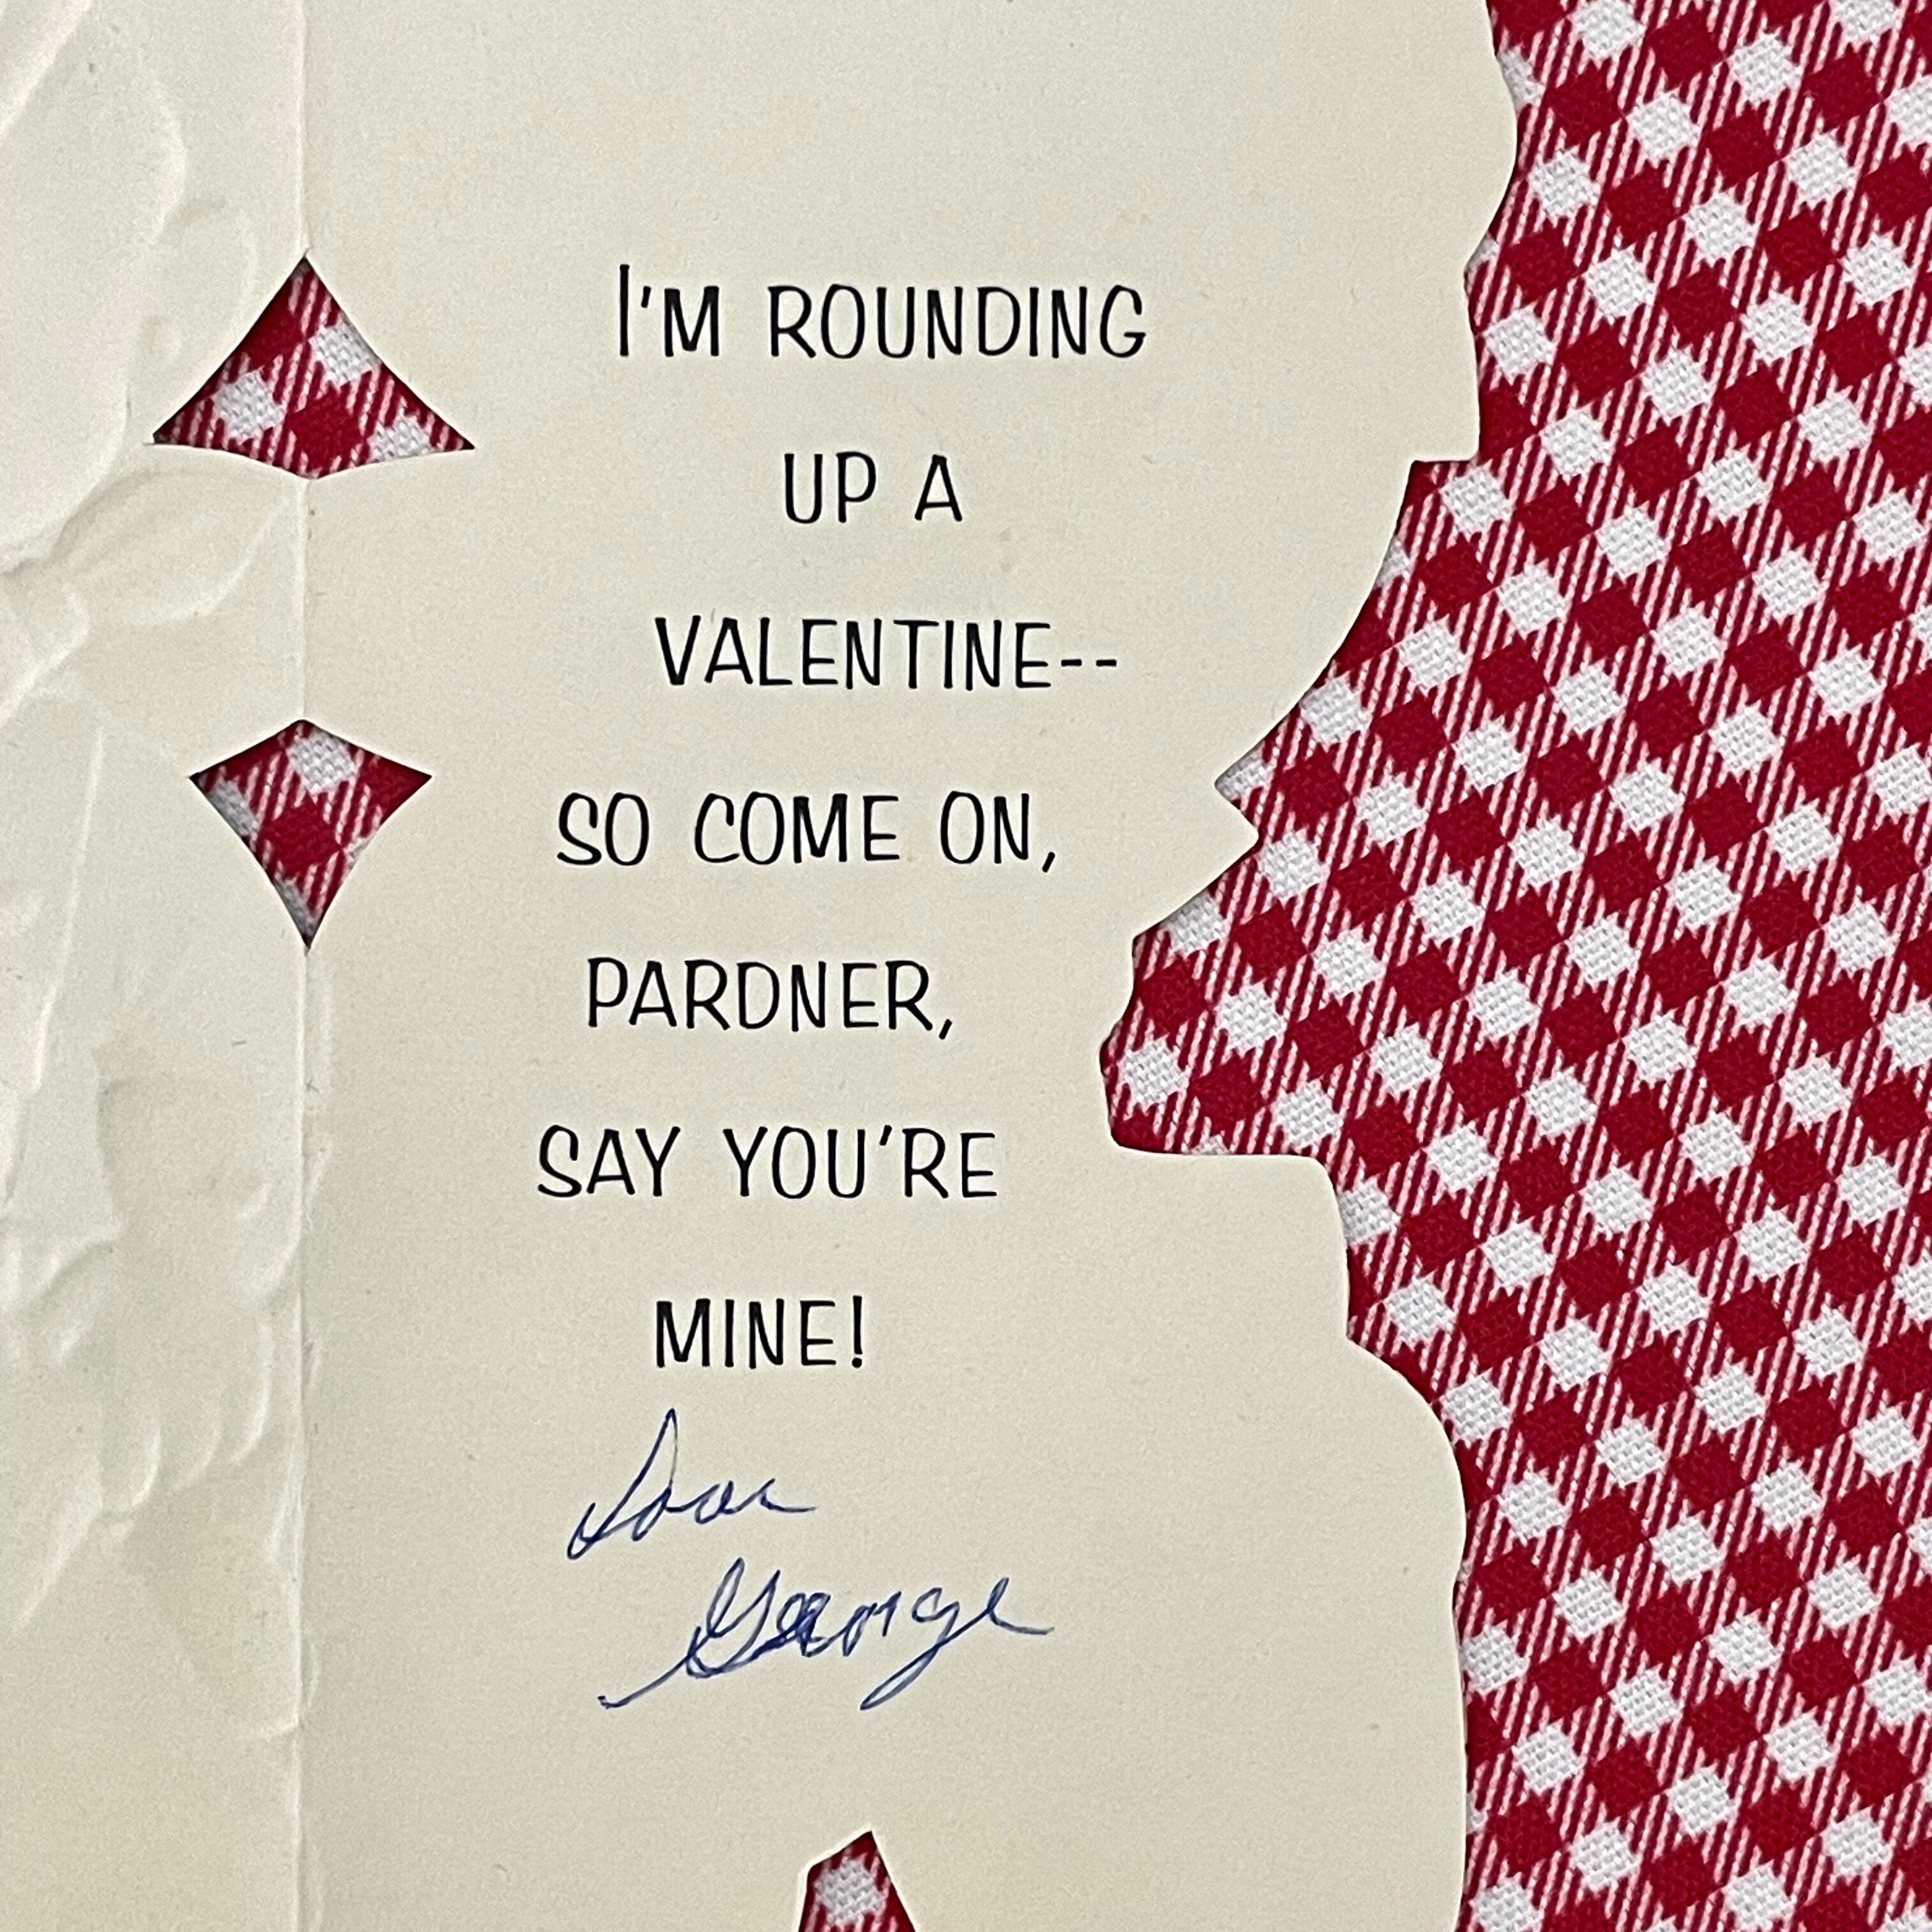 I'M ROUNDING
UP A
VALENTINE--
SO COME ON,
PARDNER,
SAY YOU'RE
MINE!
George